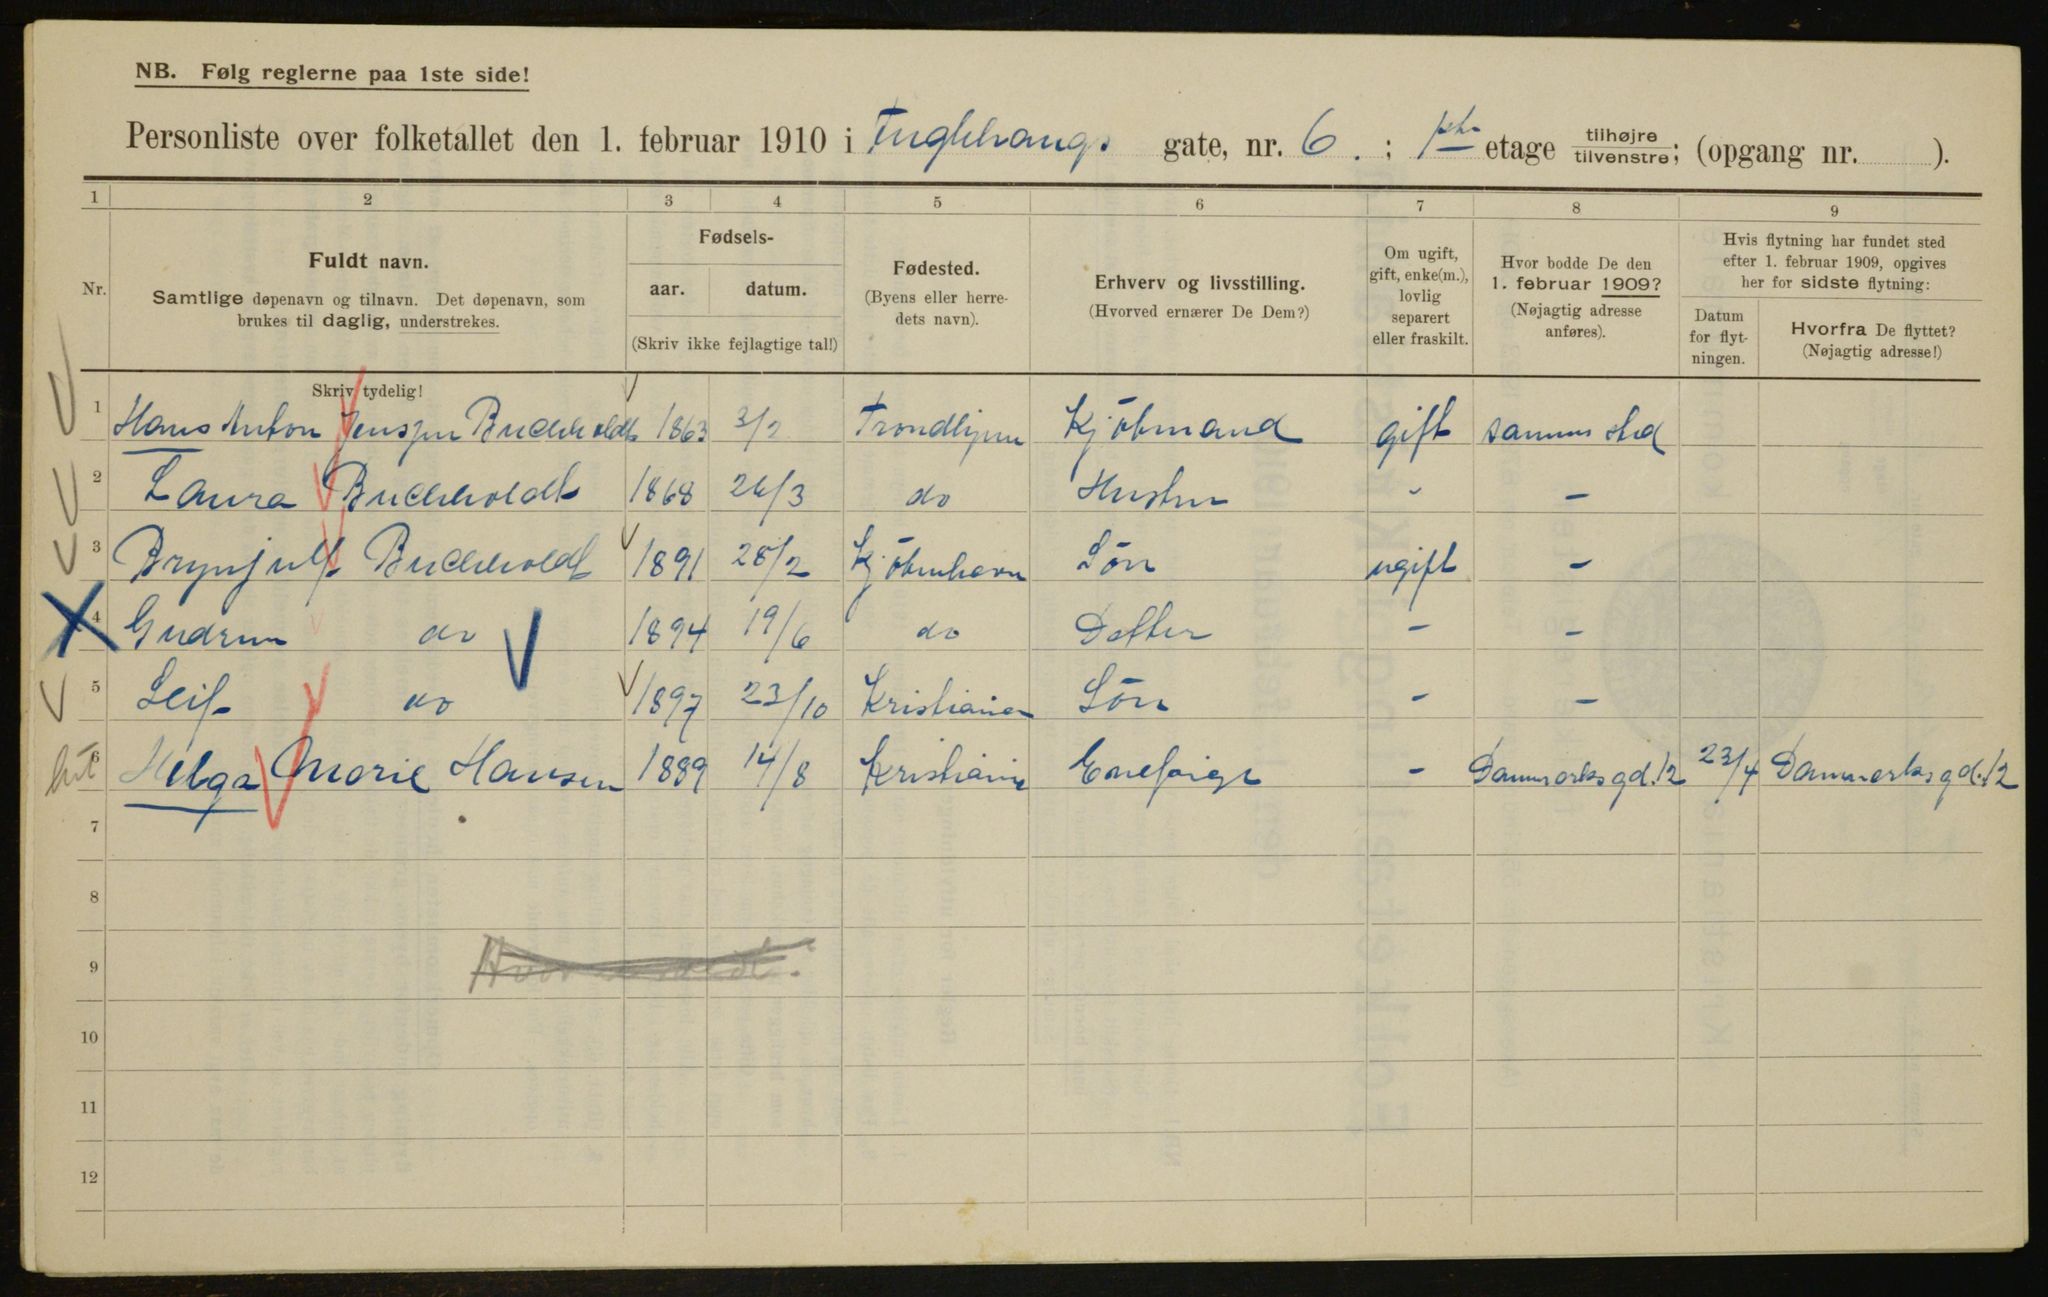 NB. Følg reglerne paa 1ste side!
Personliste over folketallet den 1. februar 1910 i Fuglehaugs gate, nr. 6. ; 1ste etage tilhøjre / tilvenstre; (opgang nr. ).
1 2 3 4 5 6 7 8 9
Nr.
Fuldt navn.
Samtlige døpenavn og tilnavn. Det døpenavn, som
brukes til daglig, understrekes.
Fødsels-
aar. datum.
(Skriv ikke fejlagtige tal!)
Fødested.
(Byens eller herre-
dets navn).
Erhverv og livsstilling.
(Hvorved ernærer De Dem?)
Om ugift,
gift, enke(m.),
lovlig
separert
eller fraskilt.
Hvor bodde De den
1. februar 1909?
(Nøjagtig adresse
anføres).
Hvis flytning har fundet sted
efter 1. februar 1909, opgives
her for sidste flytning:
Datum
for flyt-
ningen.
Hvorfra De flyttet?
(Nøjagtig adresse!)
Skriv tydelig!
1 Hans Anton Jenssen Buchholdt 1863 3/2 Trondhjem Kjöbmand gift samme sted
2 Laura Buchholdt 1868 26/3 do Hustru " –
3 Brynjulf Buchholdt 1891 28/2 Kjöbenhavn Sön ugift –
4 Gudrun do 1894 19/6 do Datter – –
5 Leif do 1897 23/10 Kristiania Sön – –
6 Helga Marie Hansen 1889 14/8 Kristiania Enepige – Danmarksgd. 12 23/4 Danmarksgd. 12
7
8
9
10
11
12